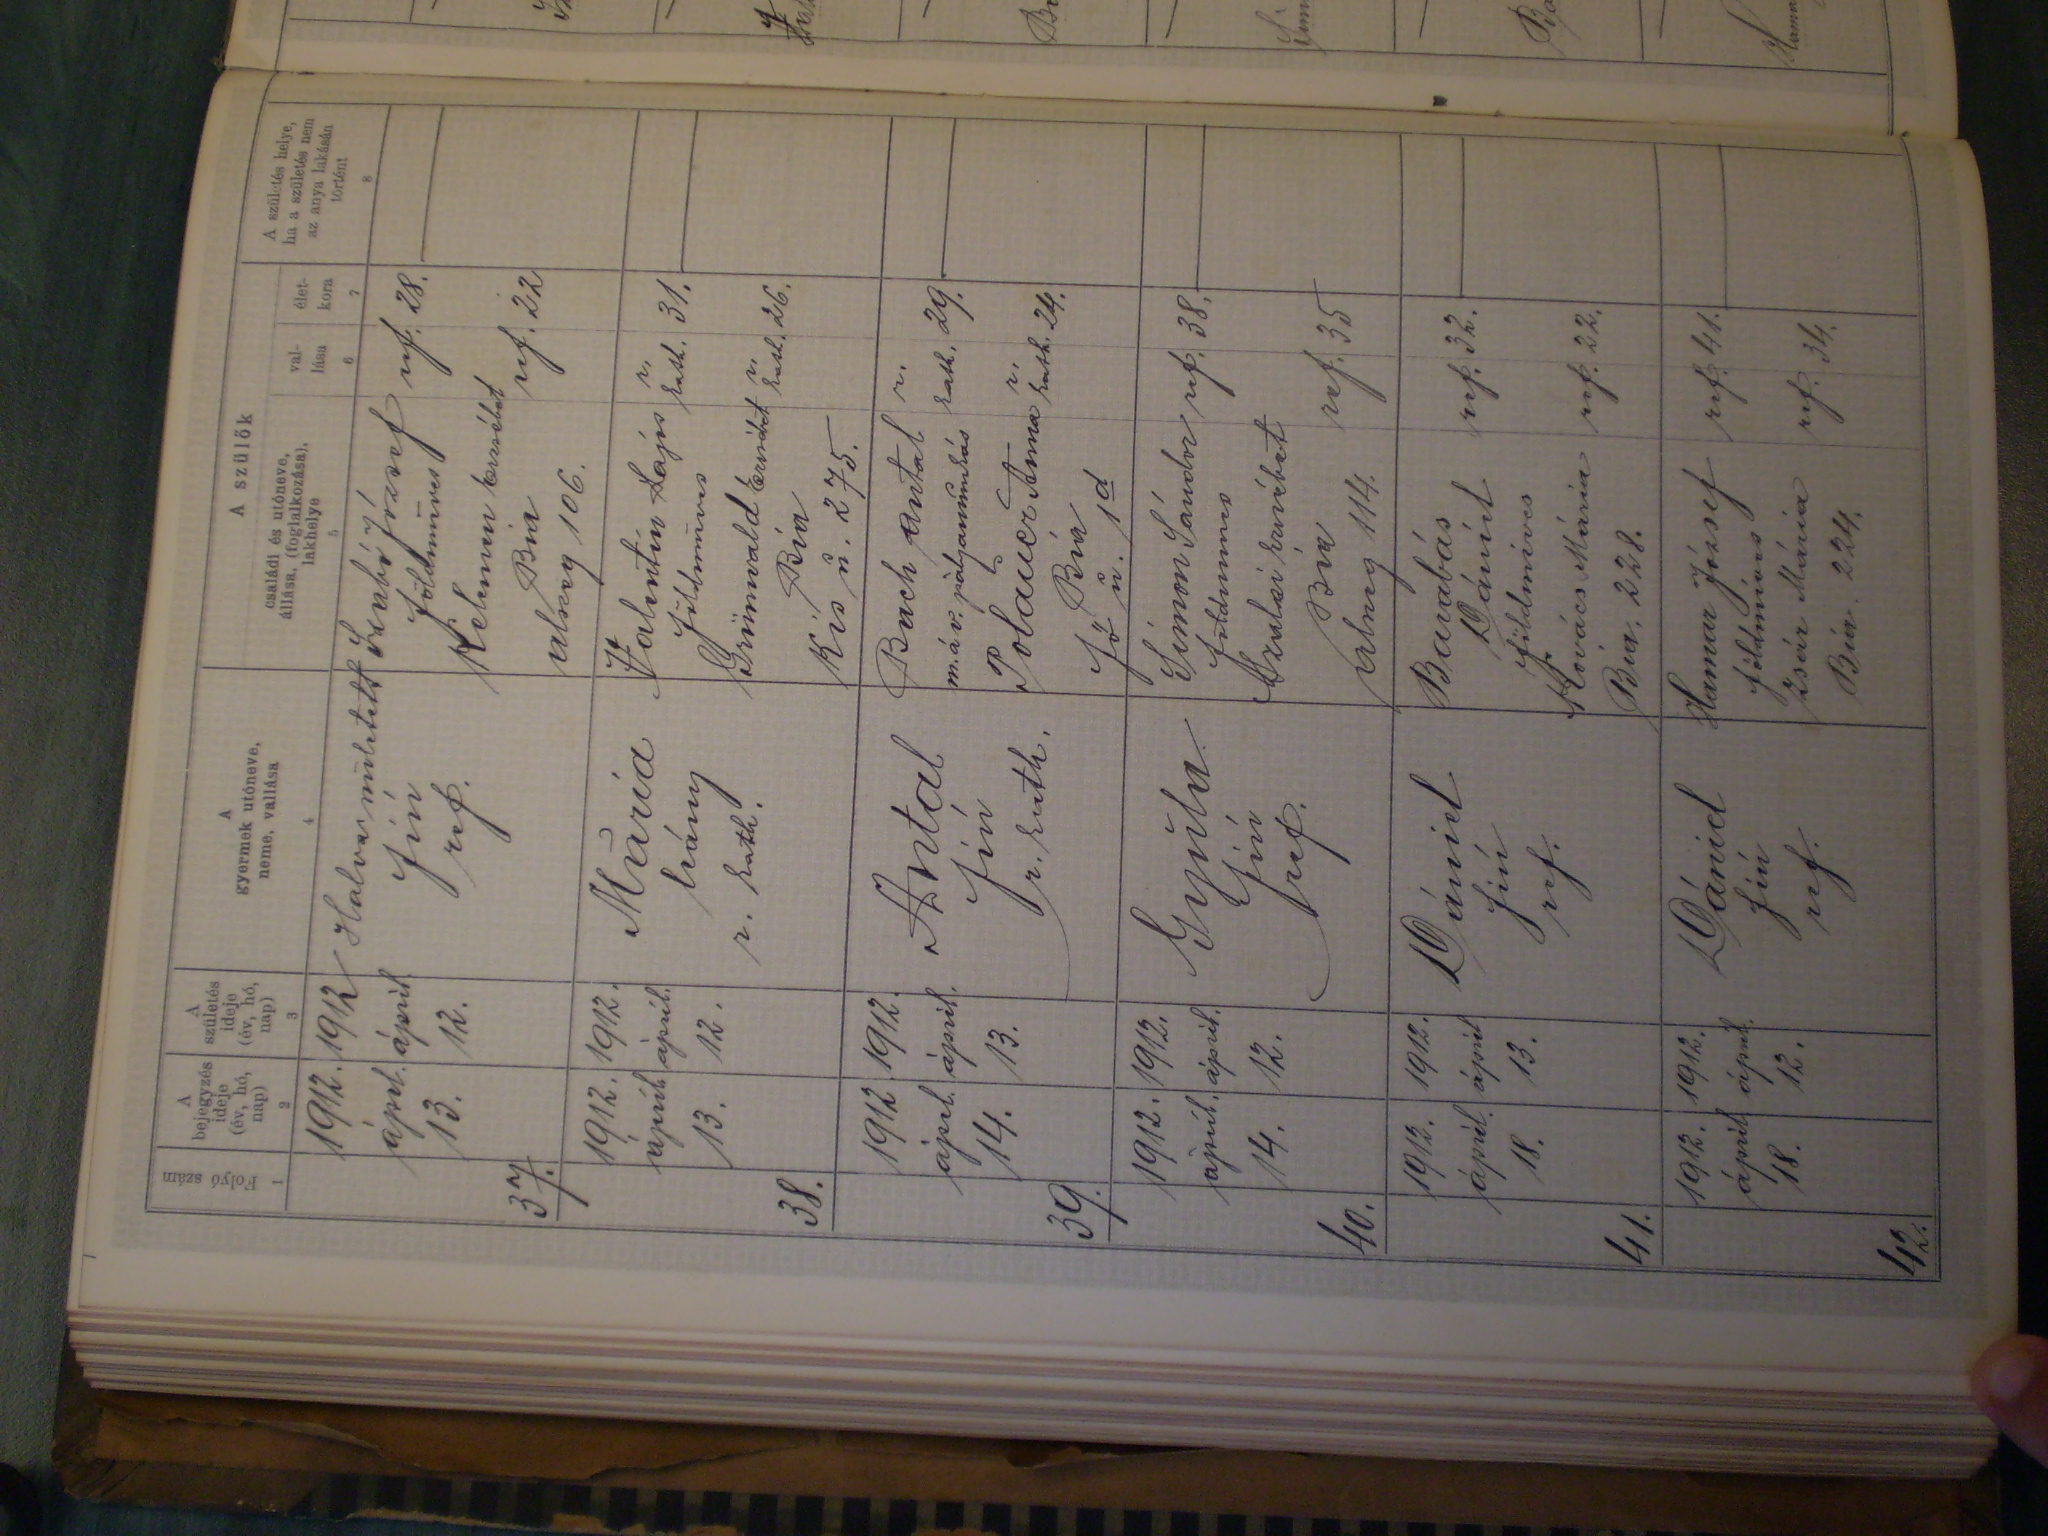 A szülők
Folyó szám
A
bejegyzés
ideje
(év, hó,
nap)
A
születés
ideje
(év, hó,
nap)
A
gyermek utóneve,
neme, vallása
családi és utóneve,
állása, (foglalkozása),
lakhelye
val-
lása
élet-
kora
A születés helye,
ha a születés nem
az anya lakásán
történt
1
2
3
4
5
6
7
8
37.
1912.
ápril.
13.
1912
ápril.
12.
Halva született
fiú
ref.
Szabó József ref. 28.
földműves
Kelemen Erzsébet
ref. 22
Bia
alszeg 106.
38.
1912.
ápril
13.
1912.
ápril.
12.
Mária
leány
r. kath.
Valentin Lajos r. kath. 31.
földműves
Grünwald Erzsébet r. kath. 26.
Bia
Kis u. 275.
39.
1912
ápril.
14.
1912.
ápril.
13.
Antal
fiú
r. kath.
Bach Antal r.
m. á. v. pályamunkás kath. 29.
Polauer Anna r. kath. 24.
Bia
Fő u. 1d
40.
1912.
ápril.
14.
1912.
ápril.
12.
Gyula
fiú
ref.
Simon Sándor ref. 38.
földműves
Szalai Erzsébet
ref. 35
Bia
alszeg 114.
41.
1912.
ápril.
18.
1912.
ápril
13.
Dániel
fiú
ref.
Barabás
Dániel ref. 32.
földműves
Kovács Mária ref. 22.
Bia. 228.
42.
1912.
ápril
18.
1912.
ápril.
12.
Dániel
fiú
ref.
Hamar József ref. 41.
földműves
Zsár Mária ref. 34.
Bia. 224.